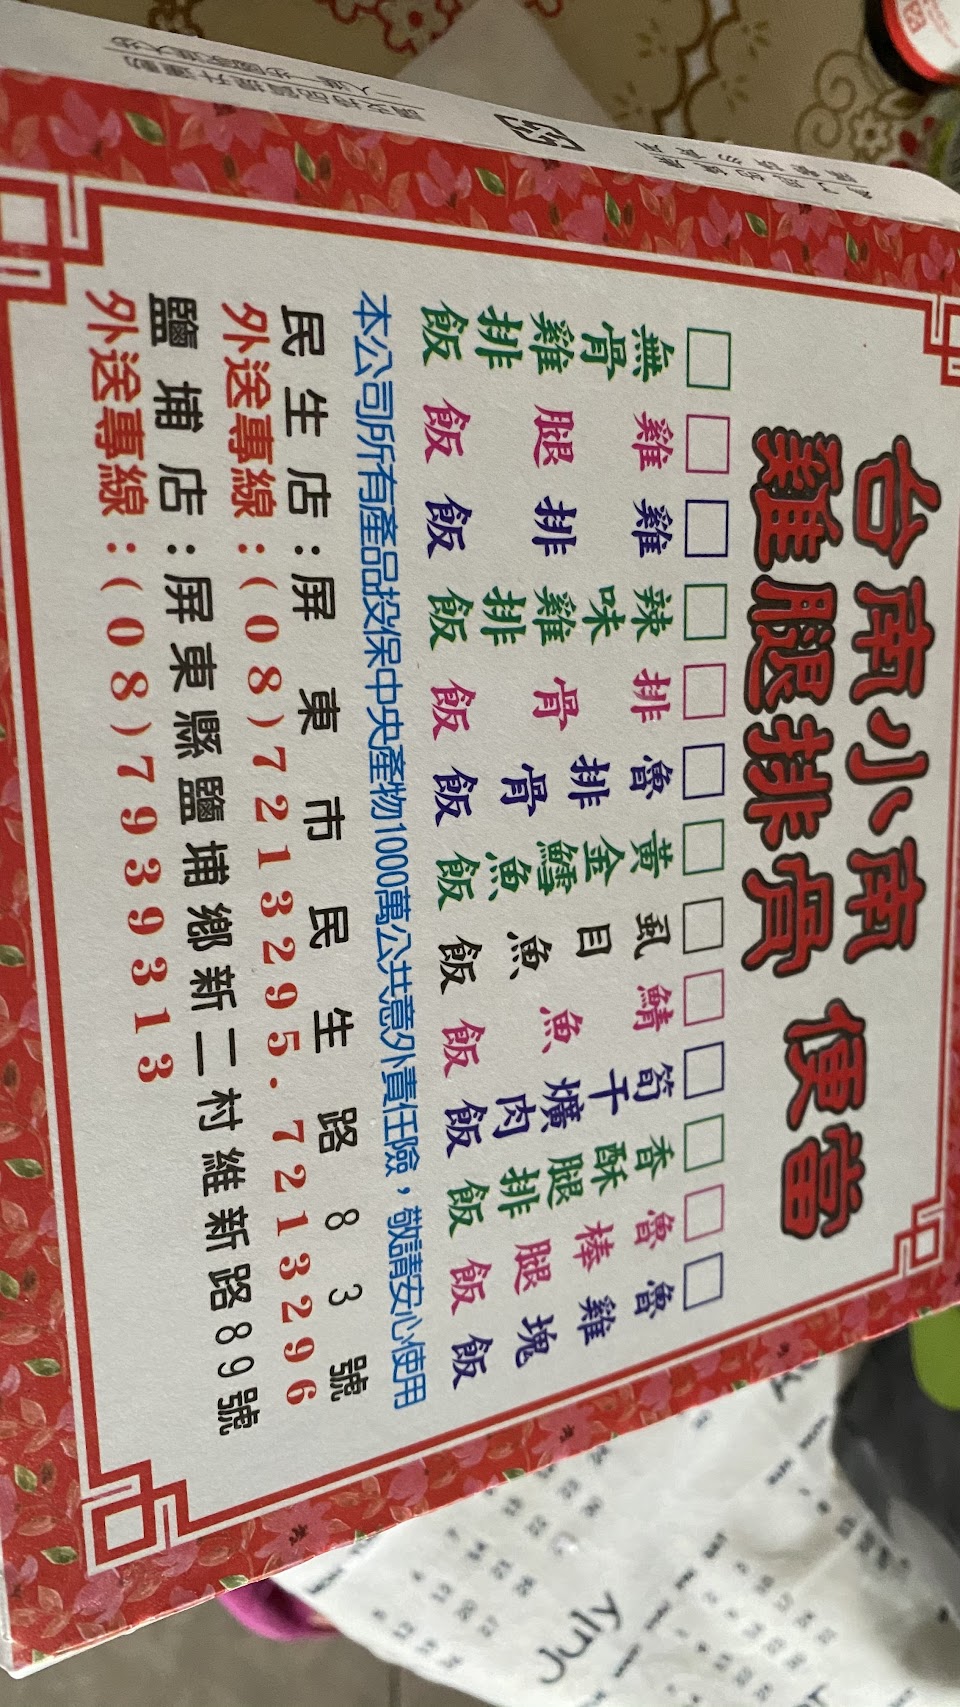 台南小南
雞腿排骨 便當
□無骨雞排飯
□雞腿飯
□雞排飯
□辣味雞排飯
□排骨飯
□魯排骨飯
□黃金鱈魚飯
□虱目魚飯
□鯖魚飯
□筍干爌肉飯
□香酥腿排飯
□魯棒腿飯
□魯雞塊飯
本公司所有產品投保中央產物1000萬公共意外責任險，敬請安心使用
民生店：屏東市民生路83號
外送專線：(08)7213295.7213296
鹽埔店：屏東縣鹽埔鄉新二村維新路89號
外送專線：(08)7939313
請支持品質提升運動
一人進一步國家進大步